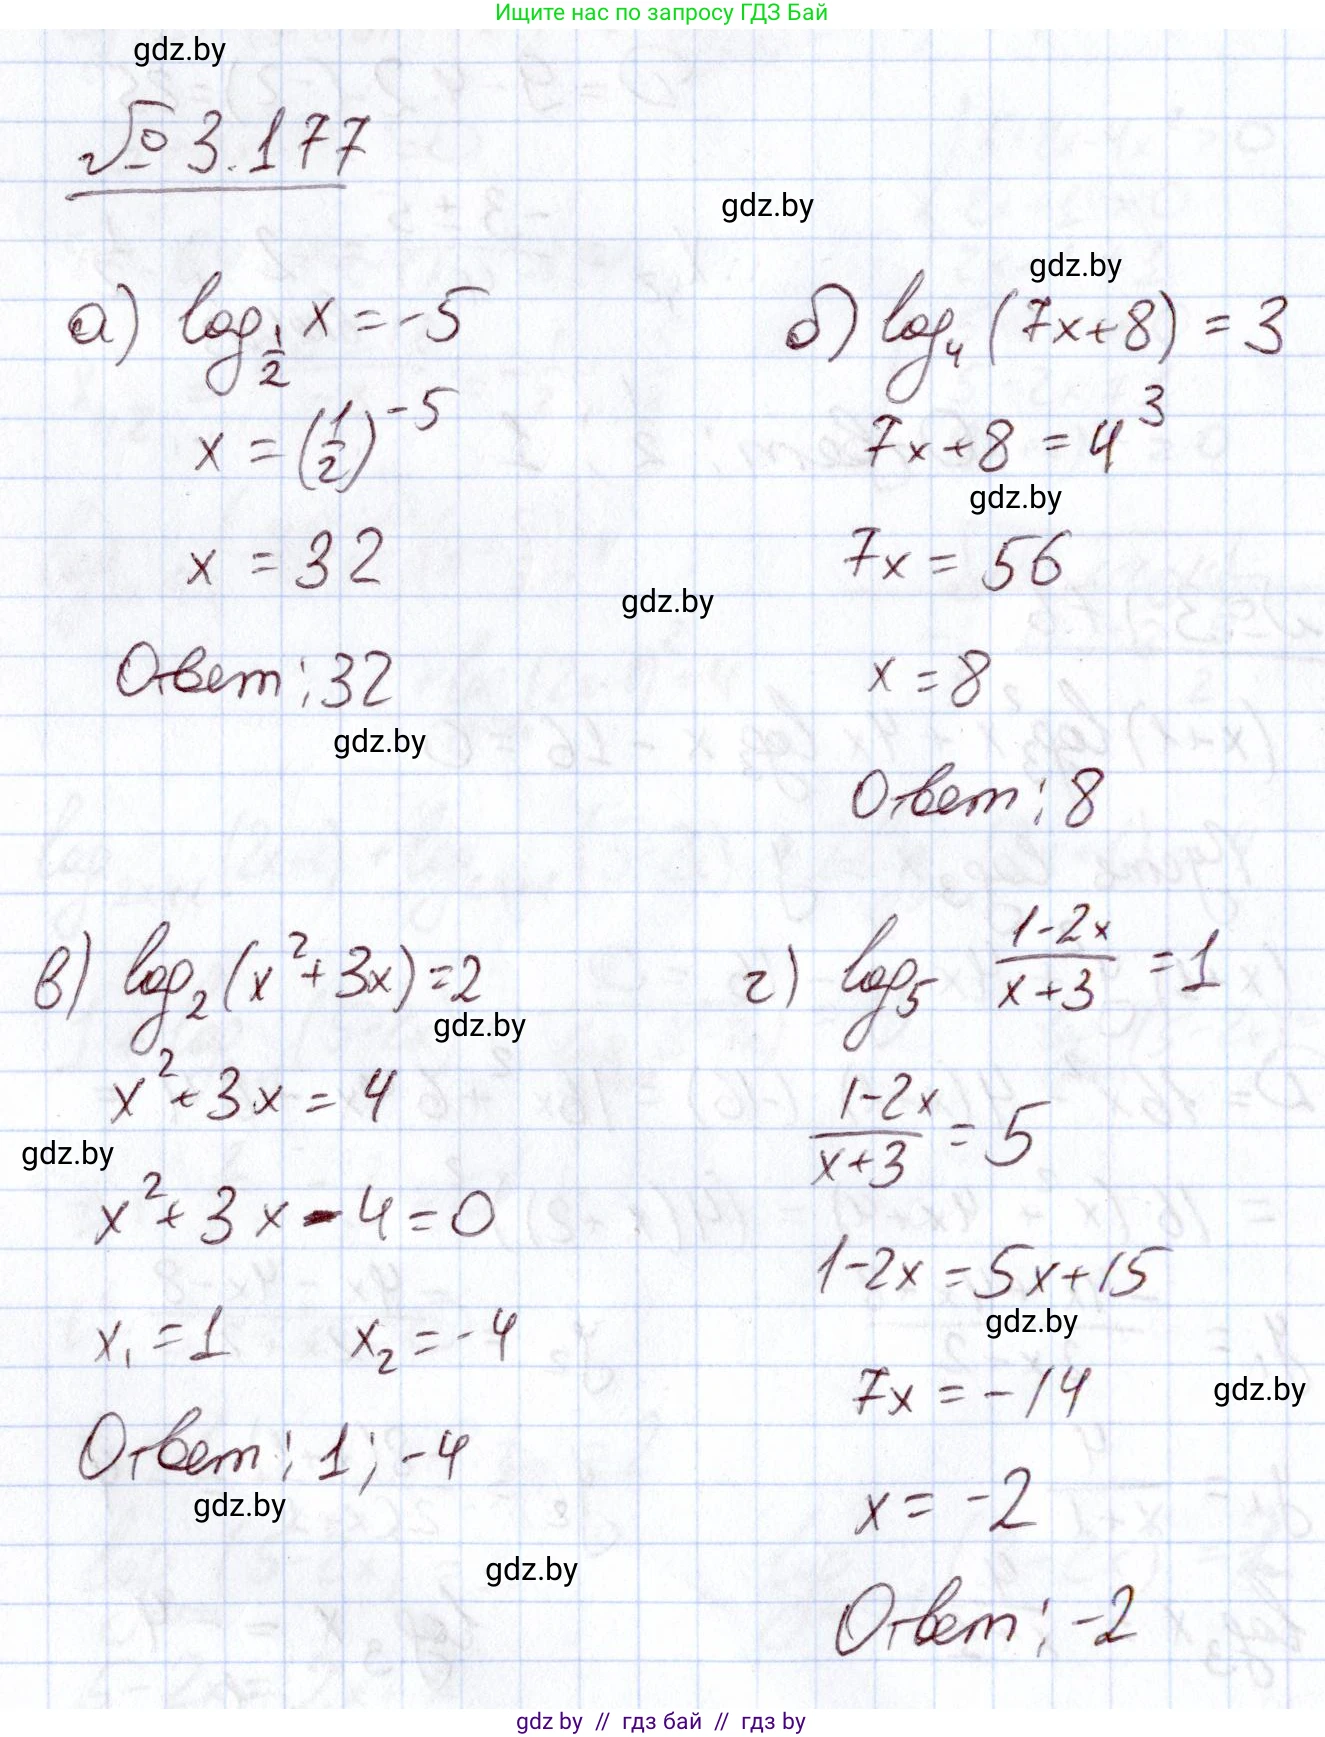 Ищите нас по запросу ГДЗ Бай
gdz.by
№ 3.177
gdz.by
gdz.by
а) log_{1/2} x = -5
x = (1/2)^{-5}
x = 32
Ответ: 32
gdz.by
gdz.by
б) log_4 (7x+8) = 3
7x+8 = 4^3
gdz.by
7x = 56
x = 8
Ответ: 8
в) log_2 (x^2+3x) = 2
gdz.by
x^2+3x = 4
gdz.by
x^2+3x-4=0
x_1 = 1 x_2 = -4
Ответ: 1; -4
gdz.by
gdz.by
г) log_5 (1-2x)/(x+3) = 1
(1-2x)/(x+3) = 5
1-2x = 5x+15
gdz.by
7x = -14
gdz.by
x = -2
Ответ: -2
gdz by // гдз бай // гдз by